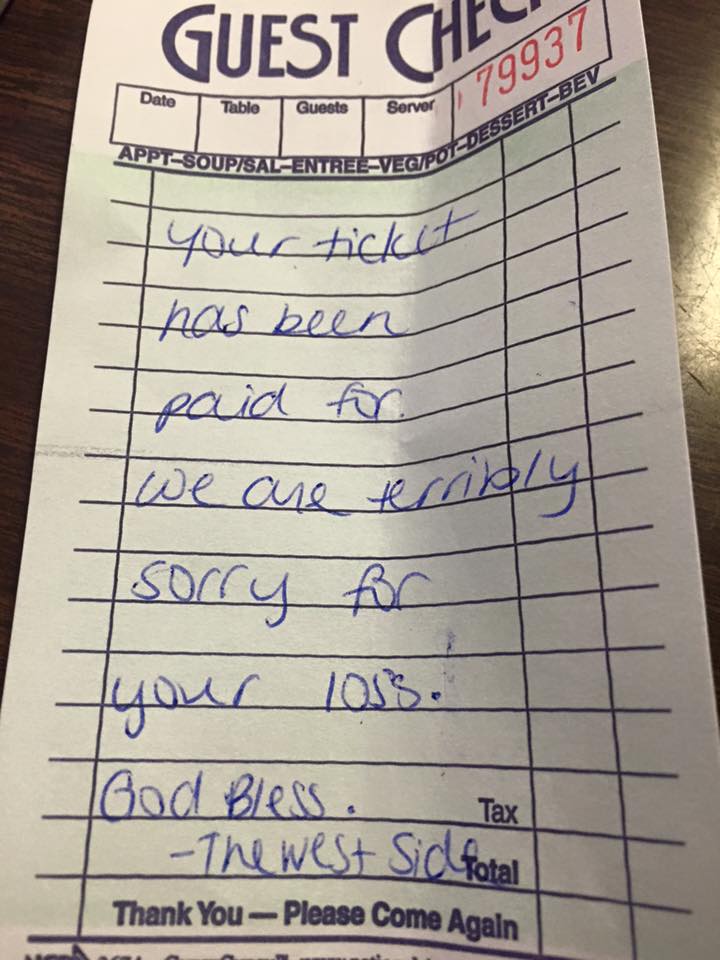 GUEST CHECK
79937
Date Table Guests Server
APPT–SOUP/SAL–ENTREE–VEG/POT–DESSERT–BEV
your ticket
has been
paid for.
we are terribly
sorry for
your loss.
God Bless.
Tax
-The West Side
Total
Thank You — Please Come Again